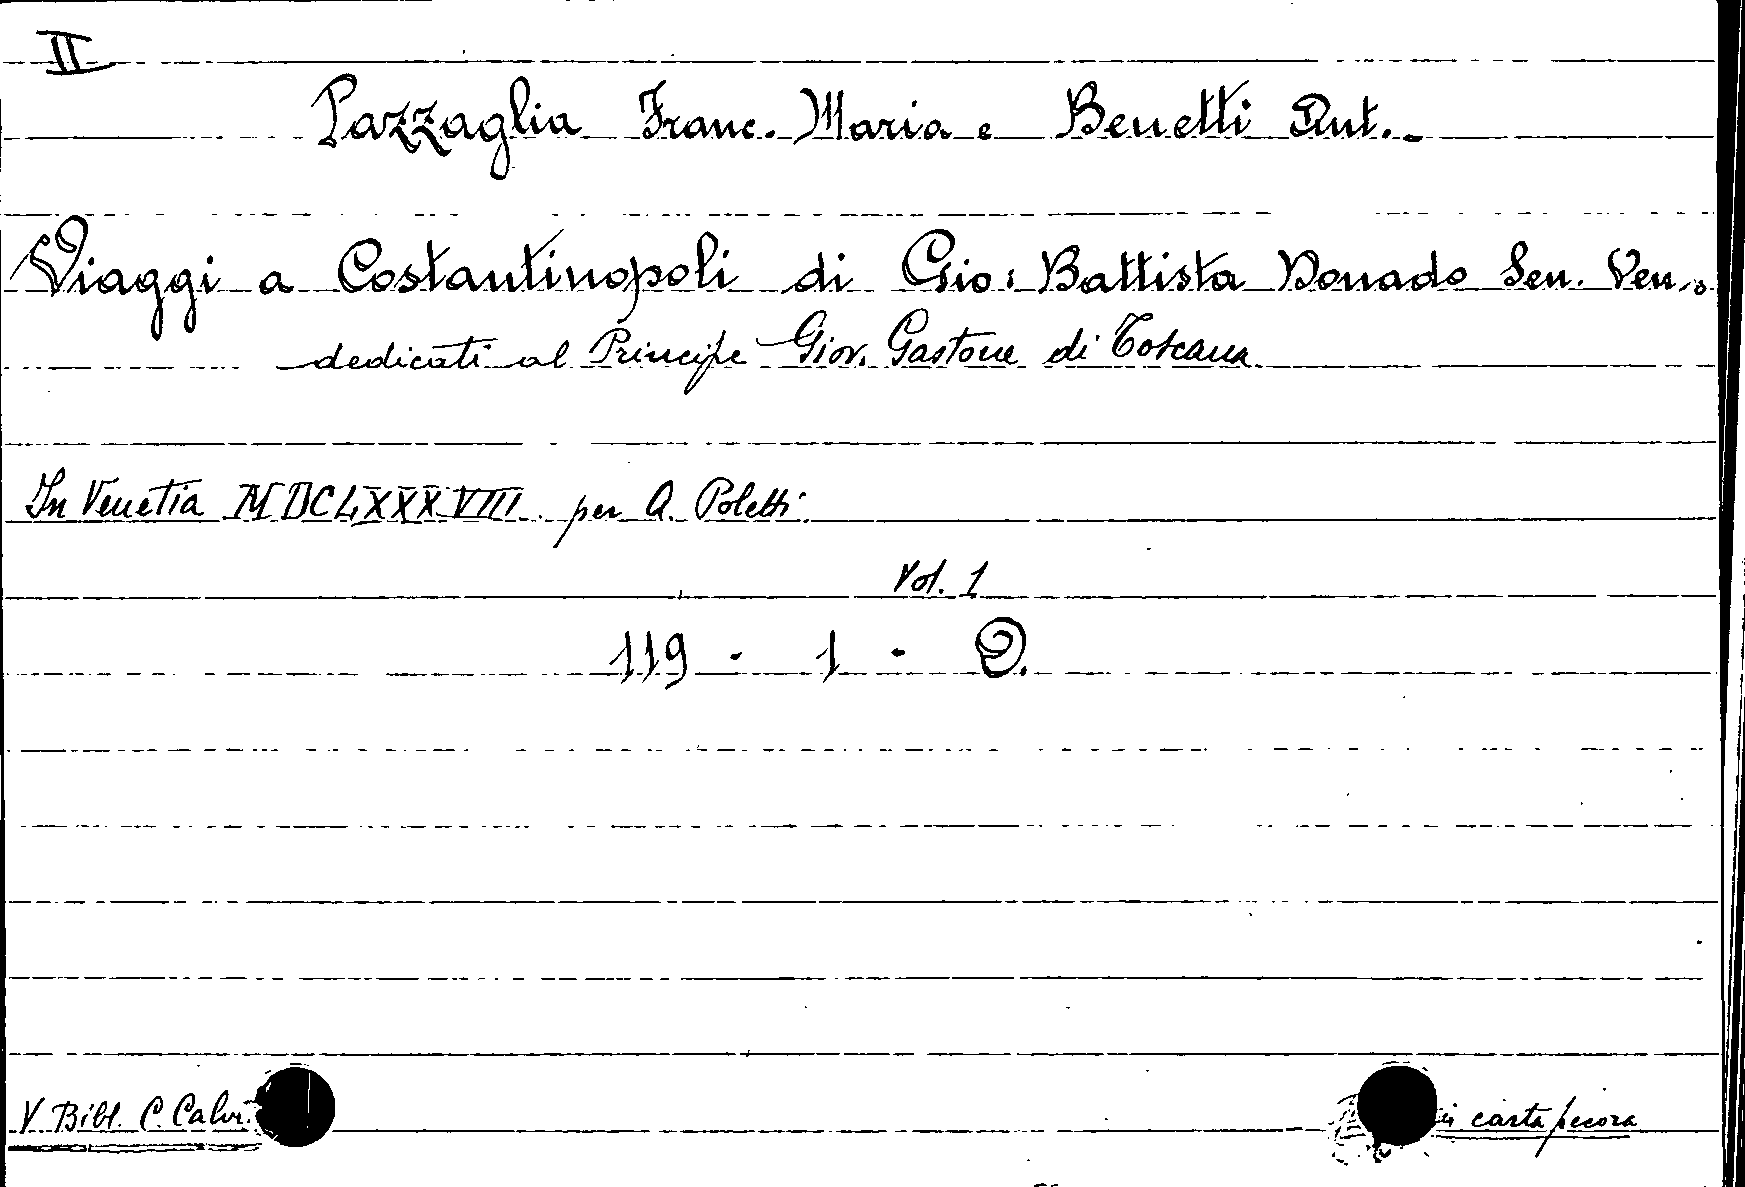 II
Pazzaglia Franc. Maria e Benetti Ant.
Viaggi a Costantinopoli di Gio: Battista Donado Sen. Ven.
dedicati al Principe Giov. Gastone di Toscana
In Venetia MDCLXXXVIII per A. Poletti
Vol. 1
119 - 1 - D.
V. Bibl. C. Calvi
carta pecora